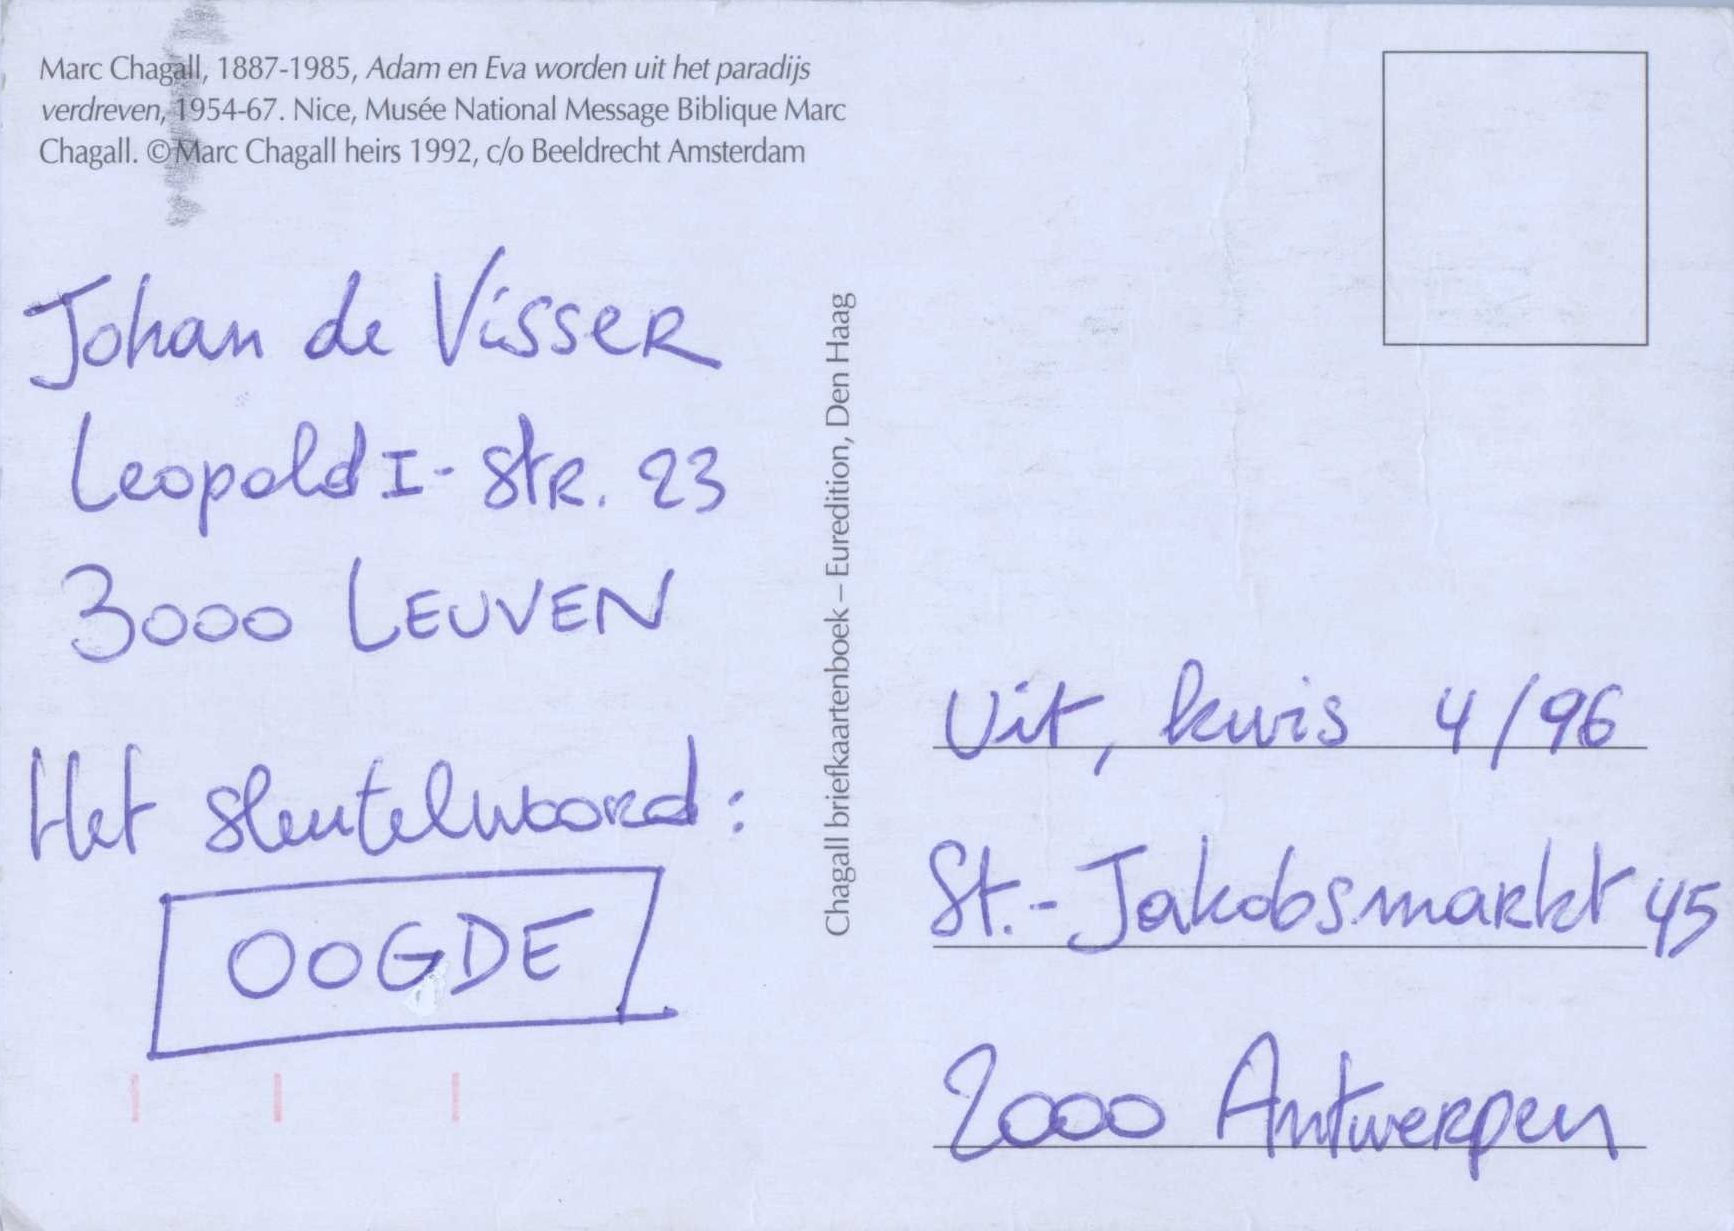 Marc Chagall, 1887-1985, Adam en Eva worden uit het paradijs
verdreven, 1954-67. Nice, Musée National Message Biblique Marc
Chagall. © Marc Chagall heirs 1992, c/o Beeldrecht Amsterdam
Johan de Visser
Leopold I - Str. 23
3000 LEUVEN
Het sleutelwoord:
OOGDE
Chagall briefkaartenboek – Euredition, Den Haag
Uit, kwis 4/96
St.-Jakobsmarkt 45
2000 Antwerpen